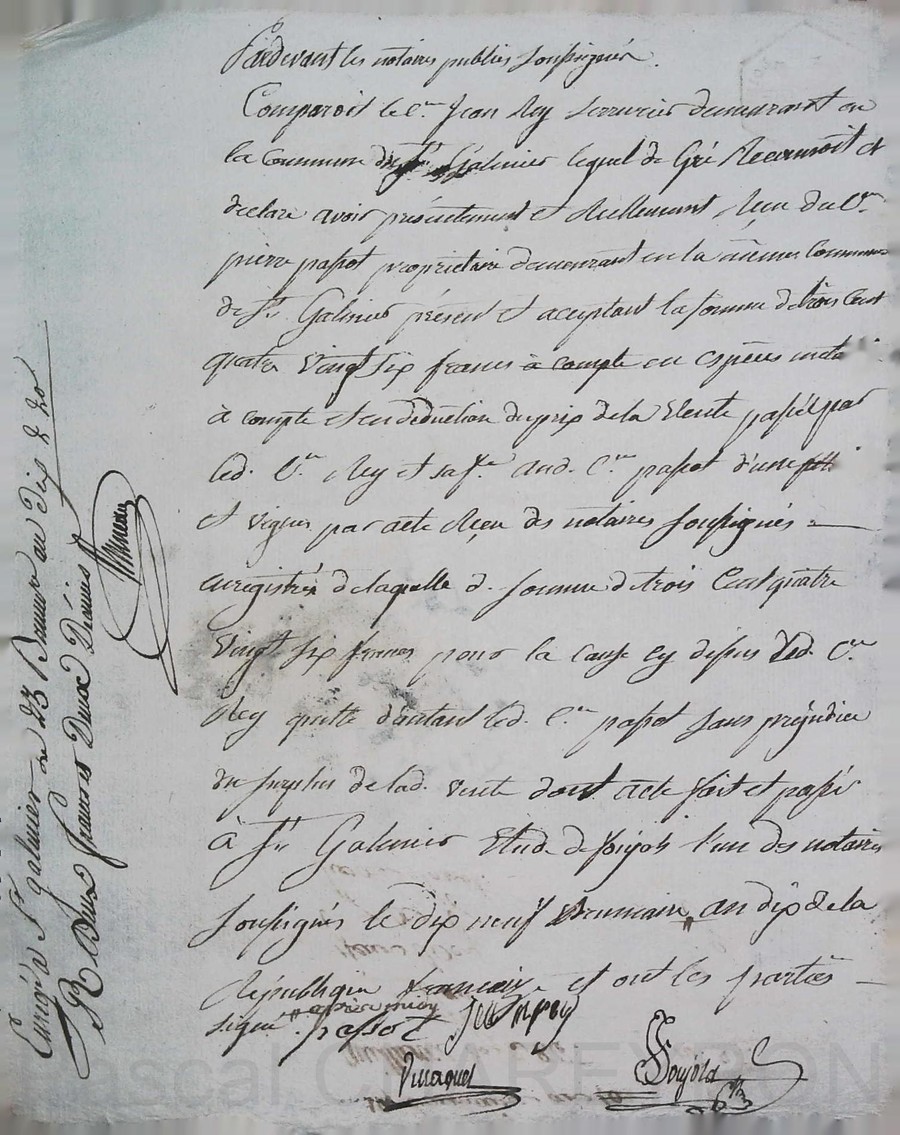 Pardevant les notaires publics soussignés.
Comparoit le Cen Jean Rey serrurier demeurant en
la commune de St Galmier lequel de Gré Reconnoit et
declare avoir présentement et Réellement Reçu du Cen
pierre passot propriétaire demeurant en la même Commune
de St Galmier présent et aceptant la somme de trois Cent
quatre Vingt six francs à compte en espèces
à compte et en déduction du prix de la Vente passée par
led. Cen Rey et sa fe aud. Cen passot d'une
et vigne par acte Reçu des notaires soussignés
enregistré de laquelle d. somme de trois Cent quatre
Vingt six francs pour la cause cy dessus led. Cen
Rey quitte d'autant led. Cen passot sans préjudice
du surplus de lad. vente dont acte fait et passé
à St Galmier Etude de l'un des notaires
soussignés le dix neuf Brumaire an dix de la
République française et ont les parties
signé.
passot Jean rey
Enregé à St galmier le 23 Brumre an Dix
R Deux francs Deux Décimes